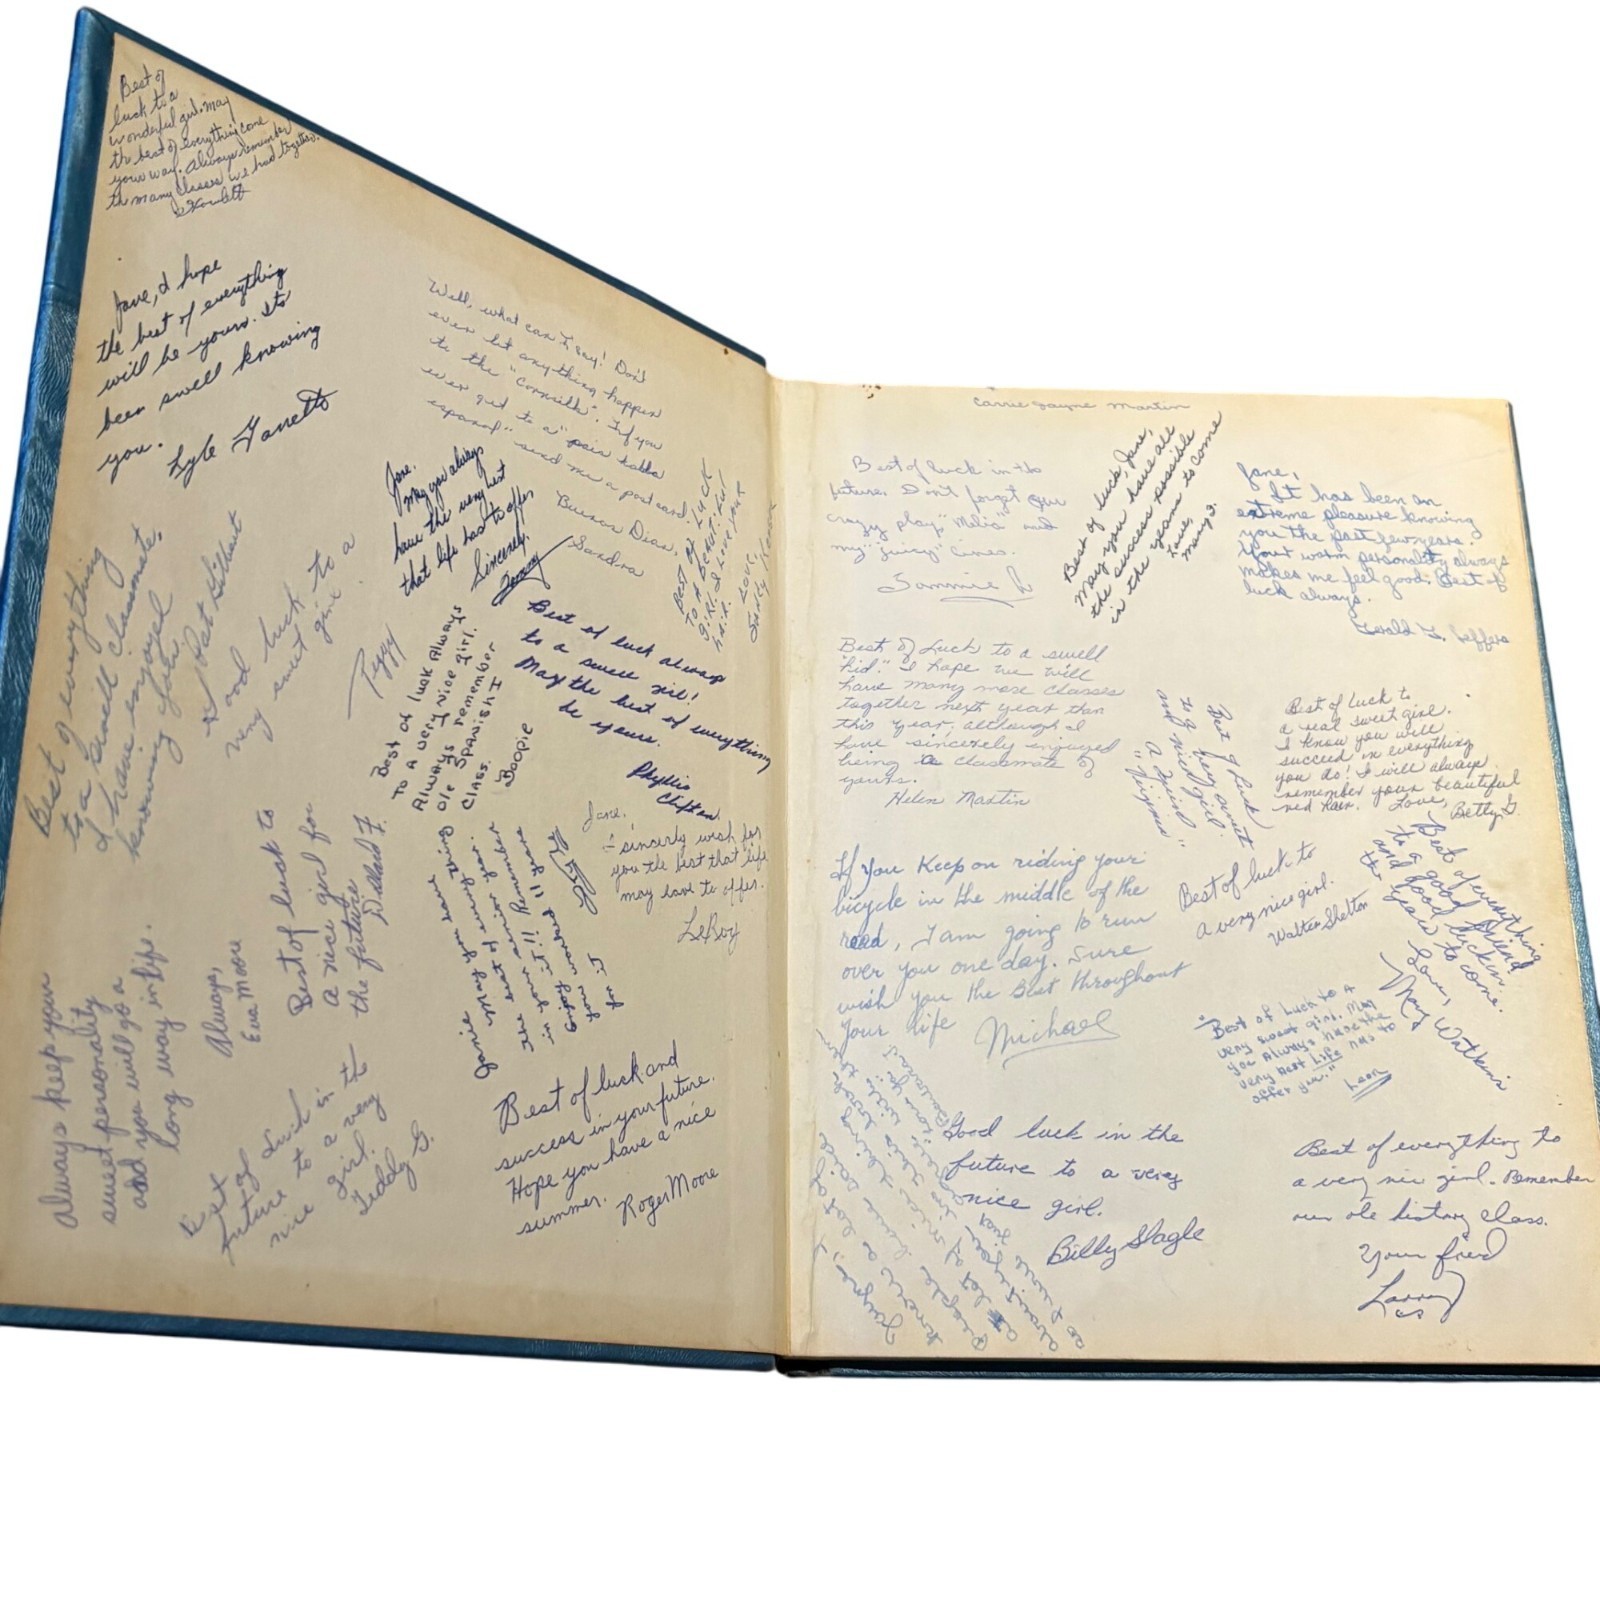 Best of
luck to a
wonderful girl. May
the best of everything come
your way. Always remember
the many classes we had together.
Jane, I hope
the best of everything
will be yours. Its
been swell knowing
you.
Lyle
Well, what can I say! Don't
ever let anything happen
to the "
ever get to a "
espanol" send me a postcard.
Buenos Dias,
Sandra
Jane,
May you always
have the very best
that life has to offer
Sincerely,
Tommy
Best of Luck
to a beautiful
girl. I love your
hair.
Love,
Judy
Best of everything
to a swell classmate.
I have enjoyed
knowing you
Pat Gilbert
Good luck to a
very sweet girl.
Peggy
Best of luck Always
to a very nice girl.
Always remember
ole Spanish I
class.
Boopie
Best of luck always
to a swell girl!
May the best of everything
be yours.
Phyllis
Clifton
Jane,
I sincerly wish for
you the best that life
may have to offer.
LeRoy
Janie
May you have
best of everything
senior year.
Remember
in your
Enjoy
for it
Best of luck to
a nice girl for
the future
Dillard F.
Always keep your
sweet personality
and you will go a
long way in life.
Always,
Eva Moore
Best of Luck in the
future to a very
nice girl.
Teddy G.
Best of luck and
success in your future.
Hope you have a nice
summer.
Roger Moore
Carrie Jayne Martin
Best of luck in the
future. Don't forget our
crazy play, "Melia" and
my "juicy" lines.
Tommie L
Best of luck, Jane,
May you have all
the success possible
in the years to come
Love,
Mary J.
Jane,
It has been an
extreme pleasure knowing
you the past few years.
Your warm personality always
makes me feel good. Best of
luck always.
Gerald L. Jeffers
Best of Luck to a swell
"kid." I hope we will
have many more classes
together next year than
this year, although I
have sincerely enjoyed
being a classmate of
yours.
Helen Martin
Best of Luck
to a very sweet
and nice girl.
A friend
Best of luck to
a real sweet girl.
I know you will
succeed in everything
you do! I will always
remember your beautiful
red hair. Love,
Betty G.
If you keep on riding your
bicycle in the middle of the
road, I am going to run
over you one day. Sure
wish you the Best throughout
Your life
Michael
Best of luck to
a very nice girl.
Walter Shelton
Best of everything
to a good friend
and good luck in
the years to come.
Love,
Mary Watkins
"Best of Luck to A
very sweet girl. May
you Always have the
very best Life has to
offer you."
Leon
Good luck in the
future to a very
nice girl.
Billy Slagle
Best of everything to
a very nice girl. Remember
our ole history class.
Your friend
Larry